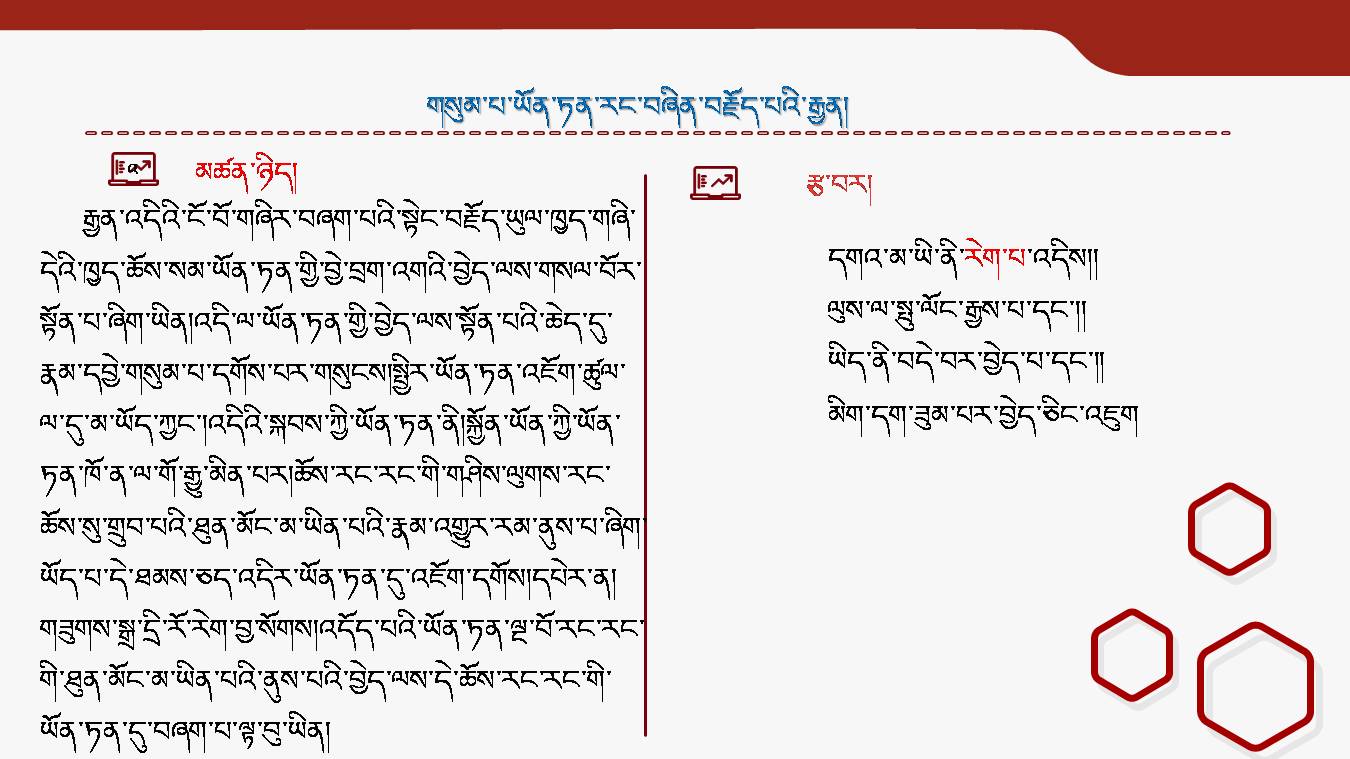 གསུམ་པ་ཡོན་ཏན་རང་བཞིན་བརྗོད་པའི་རྒྱན།
མཚན་ཉིད།
རྒྱན་འདིའི་ངོ་བོ་གཞིར་བཞག་པའི་སྟེང་བརྗོད་ཡུལ་ཁྱད་གཞི་
དེའི་ཁྱད་ཆོས་སམ་ཡོན་ཏན་གྱི་བྱེ་བྲག་འགའི་བྱེད་ལས་གསལ་བོར་
སྟོན་པ་ཞིག་ཡིན།འདི་ལ་ཡོན་ཏན་གྱི་བྱེད་ལས་སྟོན་པའི་ཆེད་དུ་
རྣམ་དབྱེ་གསུམ་པ་དགོས་པར་གསུངས།སྤྱིར་ཡོན་ཏན་འཇོག་ཚུལ་
ལ་དུ་མ་ཡོད་ཀྱང་།འདིའི་སྐབས་ཀྱི་ཡོན་ཏན་ནི།སྐྱོན་ཡོན་ཀྱི་ཡོན་
ཏན་ཁོ་ན་ལ་གོ་རྒྱུ་མིན་པར།ཆོས་རང་རང་གི་གཤིས་ལུགས་རང་
ཆོས་སུ་གྲུབ་པའི་ཐུན་མོང་མ་ཡིན་པའི་རྣམ་འགྱུར་རམ་ནུས་པ་ཞིག་
ཡོད་པ་དེ་ཐམས་ཅད་འདིར་ཡོན་ཏན་དུ་འཇོག་དགོས།དཔེར་ན།
གཟུགས་སྒྲ་དྲི་རོ་རེག་བྱ་སོགས།འདོད་པའི་ཡོན་ཏན་ལྔ་བོ་རང་རང་
གི་ཐུན་མོང་མ་ཡིན་པའི་ནུས་པའི་བྱེད་ལས་དེ་ཆོས་རང་རང་གི་
ཡོན་ཏན་དུ་བཞག་པ་ལྟ་བུ་ཡིན།
རྩ་བར།
དགའ་མ་ཡི་ནི་རེག་པ་འདིས།།
ལུས་ལ་སྤུ་ལོང་རྒྱས་པ་དང་།།
ཡིད་ནི་བདེ་བར་བྱེད་པ་དང་།།
མིག་དག་ཟུམ་པར་བྱེད་ཅིང་འཇུག